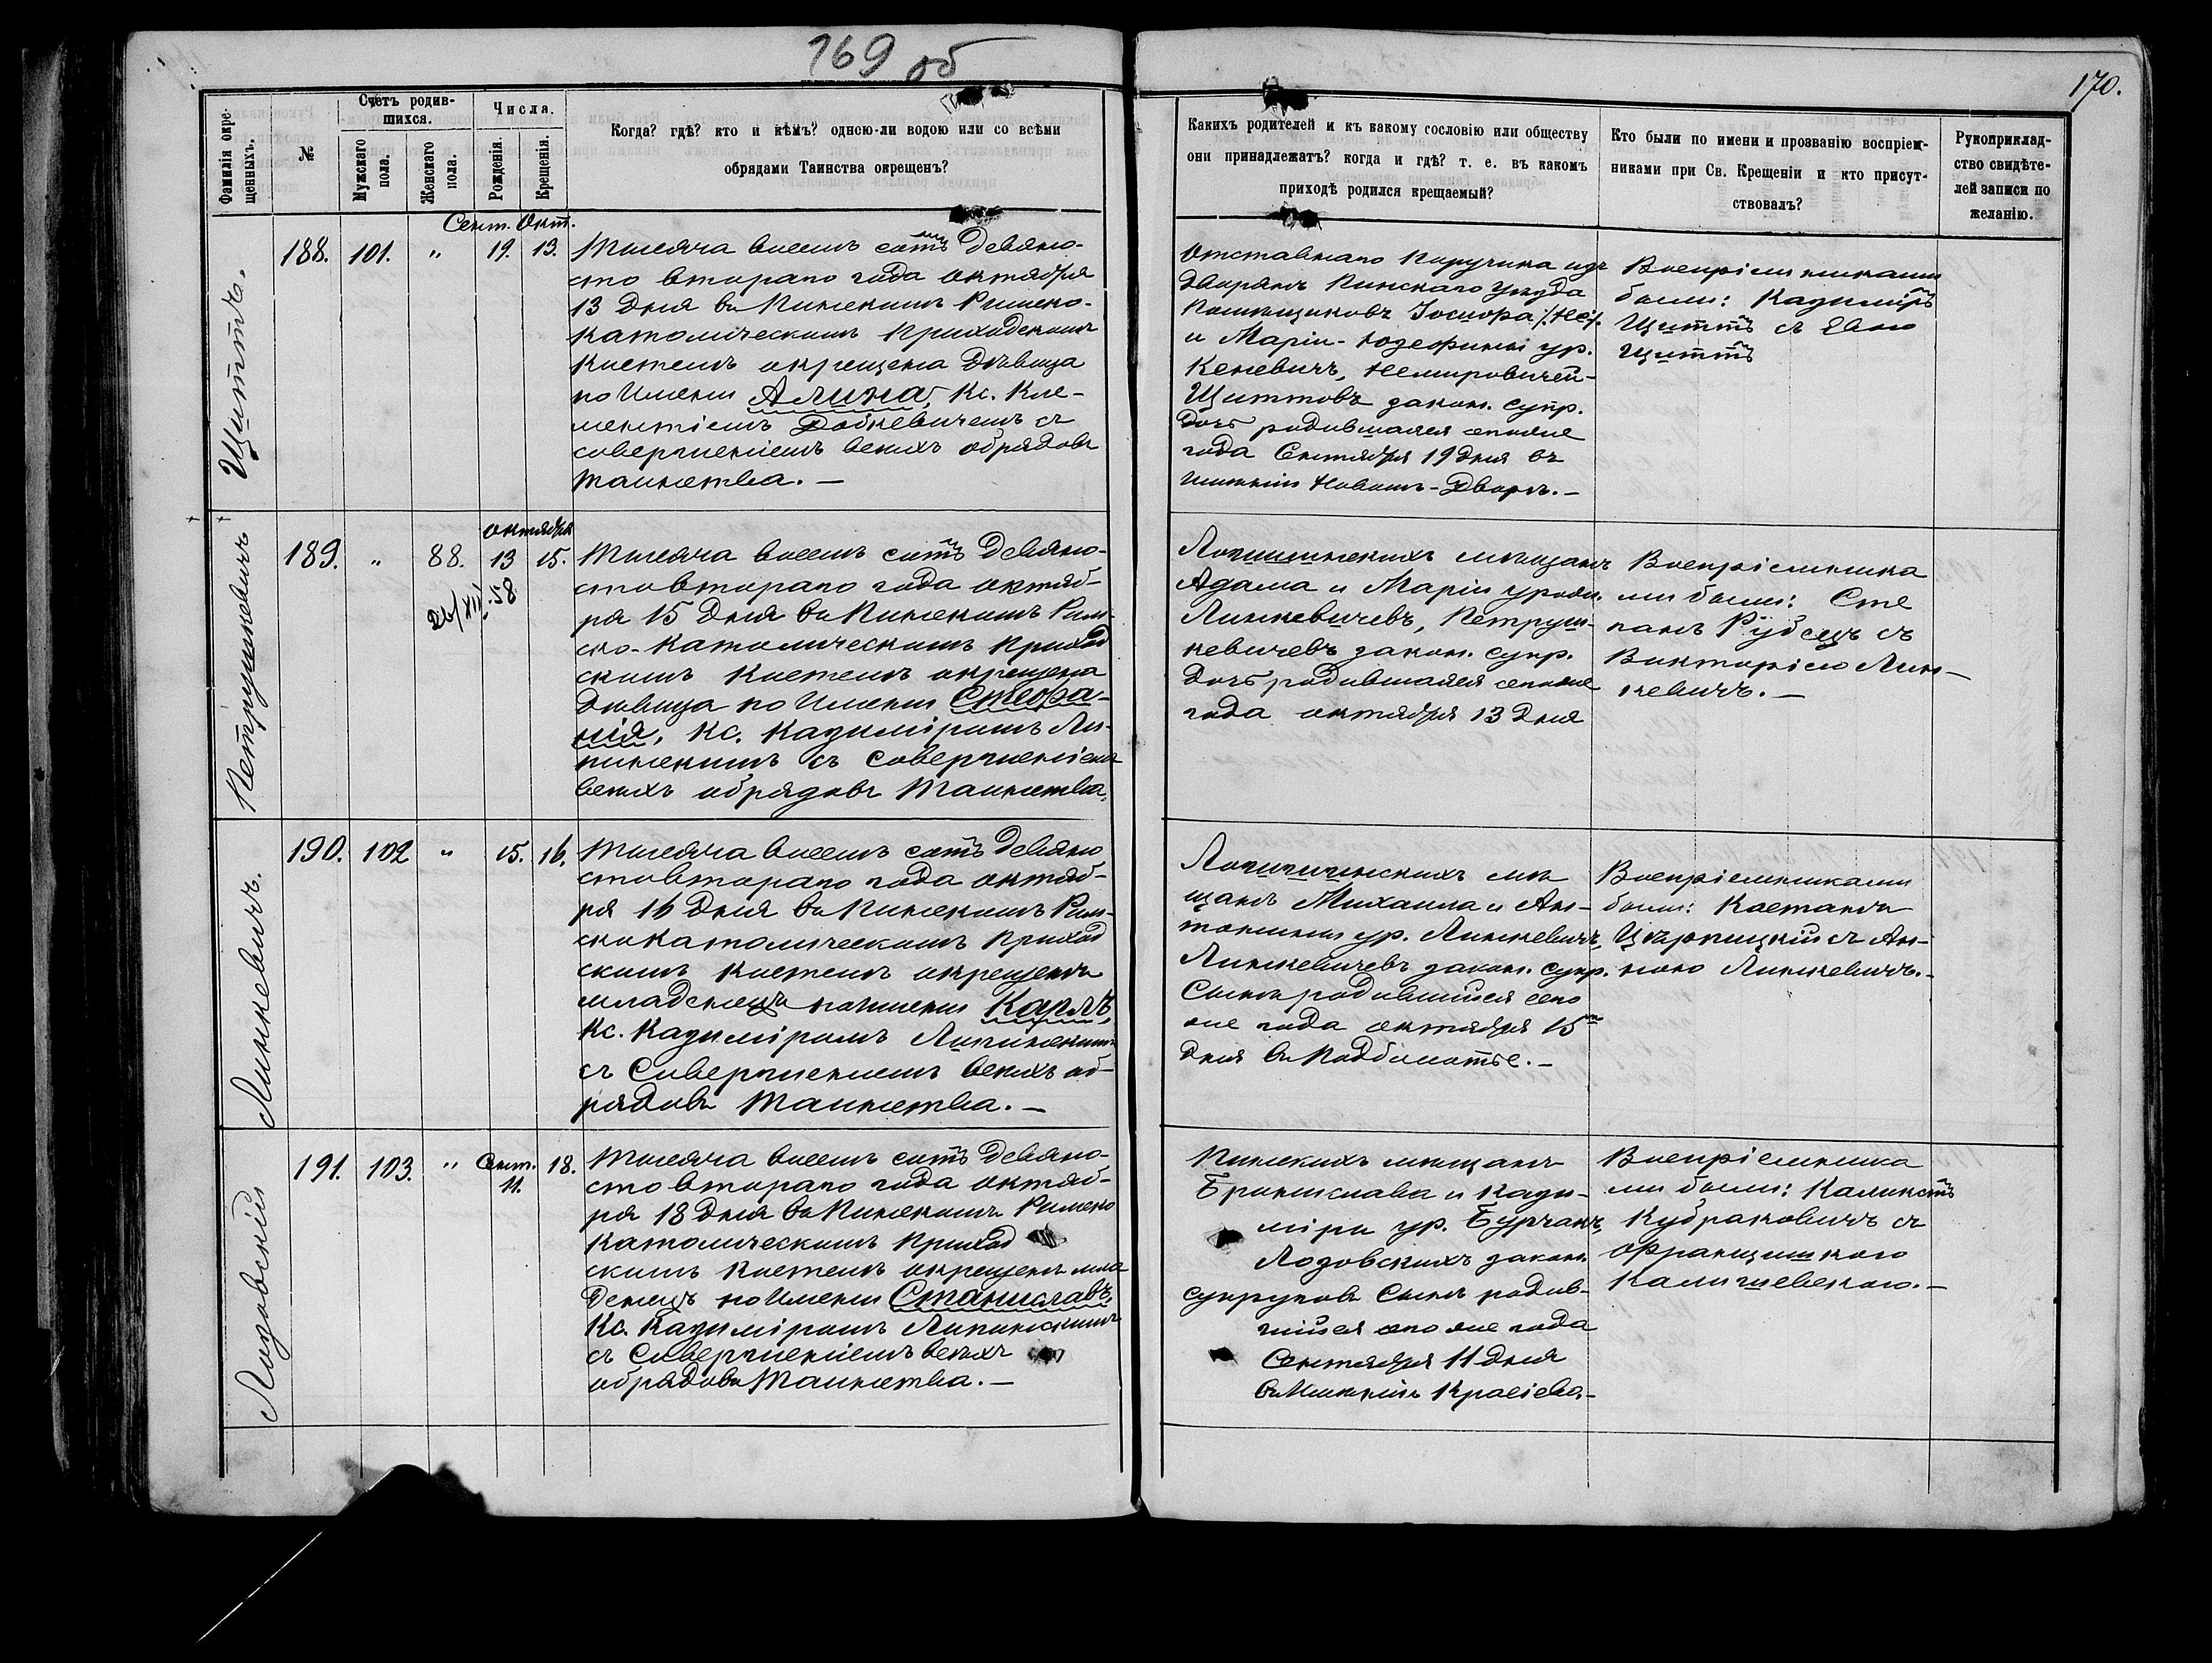 169 об
170.
Фамилія окре-
щенныхъ.
№
Счетъ родив-
шихся.
Мужскаго
пола.
Женскаго
пола.
Числа.
Рожденія.
Крещенія.
Когда? гдѣ? кто и кѣмъ? одною-ли водою или со всѣми
обрядами Таинства окрещенъ?
Какихъ родителей и къ какому сословію или обществу
они принадлежатъ? когда и гдѣ? т. е. въ какомъ
приходѣ родился крещаемый?
Кто были по имени и прозванію воспріем-
никами при Св. Крещеніи и кто присут-
ствовалъ?
Рукоприклад-
ство свидѣте-
лей записи по
желанію.
Щиттъ.
188. 101. " Сент. 19. Окт. 13.
Тысяча восемь сотъ девяно-
сто втораго года октября
13 дня въ Пинскомъ Римско-
католическомъ Приходскомъ
костелѣ окрещена Дѣвица
по Имени Алина, Кс. Кле-
ментіемъ съ
совершеніемъ всѣхъ обрядовъ
таинства. —
Отставнаго Поручика изъ
дворянъ Пинскаго уѣзда
Помѣщиковъ Іосифа
и Маріи-Юзефины ур.
Кеневичъ, Немировичей-
Щиттовъ закон. супр.
дочь родившаяся сегоже
года Сентября 19 дня въ
имѣніи Новомъ-Дворѣ. —
Воспріемниками
были: Казиміръ
Щиттъ съ Евою
Щиттъ
Петрушкевичъ
189. " 88. октября 13 15.
26/XII 58
Тысяча восемь сотъ девяно-
сто втораго года октяб-
ря 15 дня въ Пинскомъ Рим-
ско-католическомъ Приход
скомъ костелѣ окрещена
Дѣвица по Имени Стефа-
нія, Кс. Казиміромъ Ли-
пинскимъ съ совершеніемъ
всѣхъ обрядовъ Таинства.
Логишинскихъ мѣщанъ
Адама и Маріи урожд.
Линкевичевъ, Петруш-
кевичевъ закон. супр.
дочь родившаяся сегоже
года октября 13 дня
Воспріемника
ми были: Сте
панъ Рубецъ съ
Викторіею Лин-
кевичъ. —
Линкевичъ.
190. 102 " 15. 16.
Тысяча восемь сотъ девяно
сто втораго года октяб-
ря 16 дня въ Пинскомъ Рим-
ско Католическомъ Приход
скомъ костелѣ окрещенъ
младенецъ по имени Карлъ,
Кс. Казиміромъ Липинскимъ
съ Совершеніемъ всѣхъ об-
рядовъ Таинства. —
Логишинскихъ мѣ
щанъ Михаила и Ан-
тонины ур. Линкевичъ,
Линкевичевъ закон. супр.
Сынъ родившійся сего
же года октября 15го
дня въ Подболотье. —
Воспріемниками
были: Констанъ
съ Ан-
ною Линкевичъ. —
Лозовскій
191. 103. " Сент. 11. 18.
Тысяча восемь сотъ девяно-
сто втораго года октяб-
ря 18 дня въ Пинскомъ Римско
католическомъ Приход
скомъ костелѣ окрещенъ мла
денецъ по Имени Станиславъ,
Кс. Казиміромъ Липинскимъ
съ Совершеніемъ всѣхъ
обрядовъ Таинства. —
Пинскихъ мѣщанъ
Бронислава и Кази-
міры ур. Бурчакъ,
Лозовскихъ закон.
супруговъ Сынъ родив-
шійся сего же года
Сентября 11 дня
въ Имѣніи Красіево. —
Воспріемника
ми были: Каликстъ
Кудраковичъ съ
Францишкою
Калишевскою. —